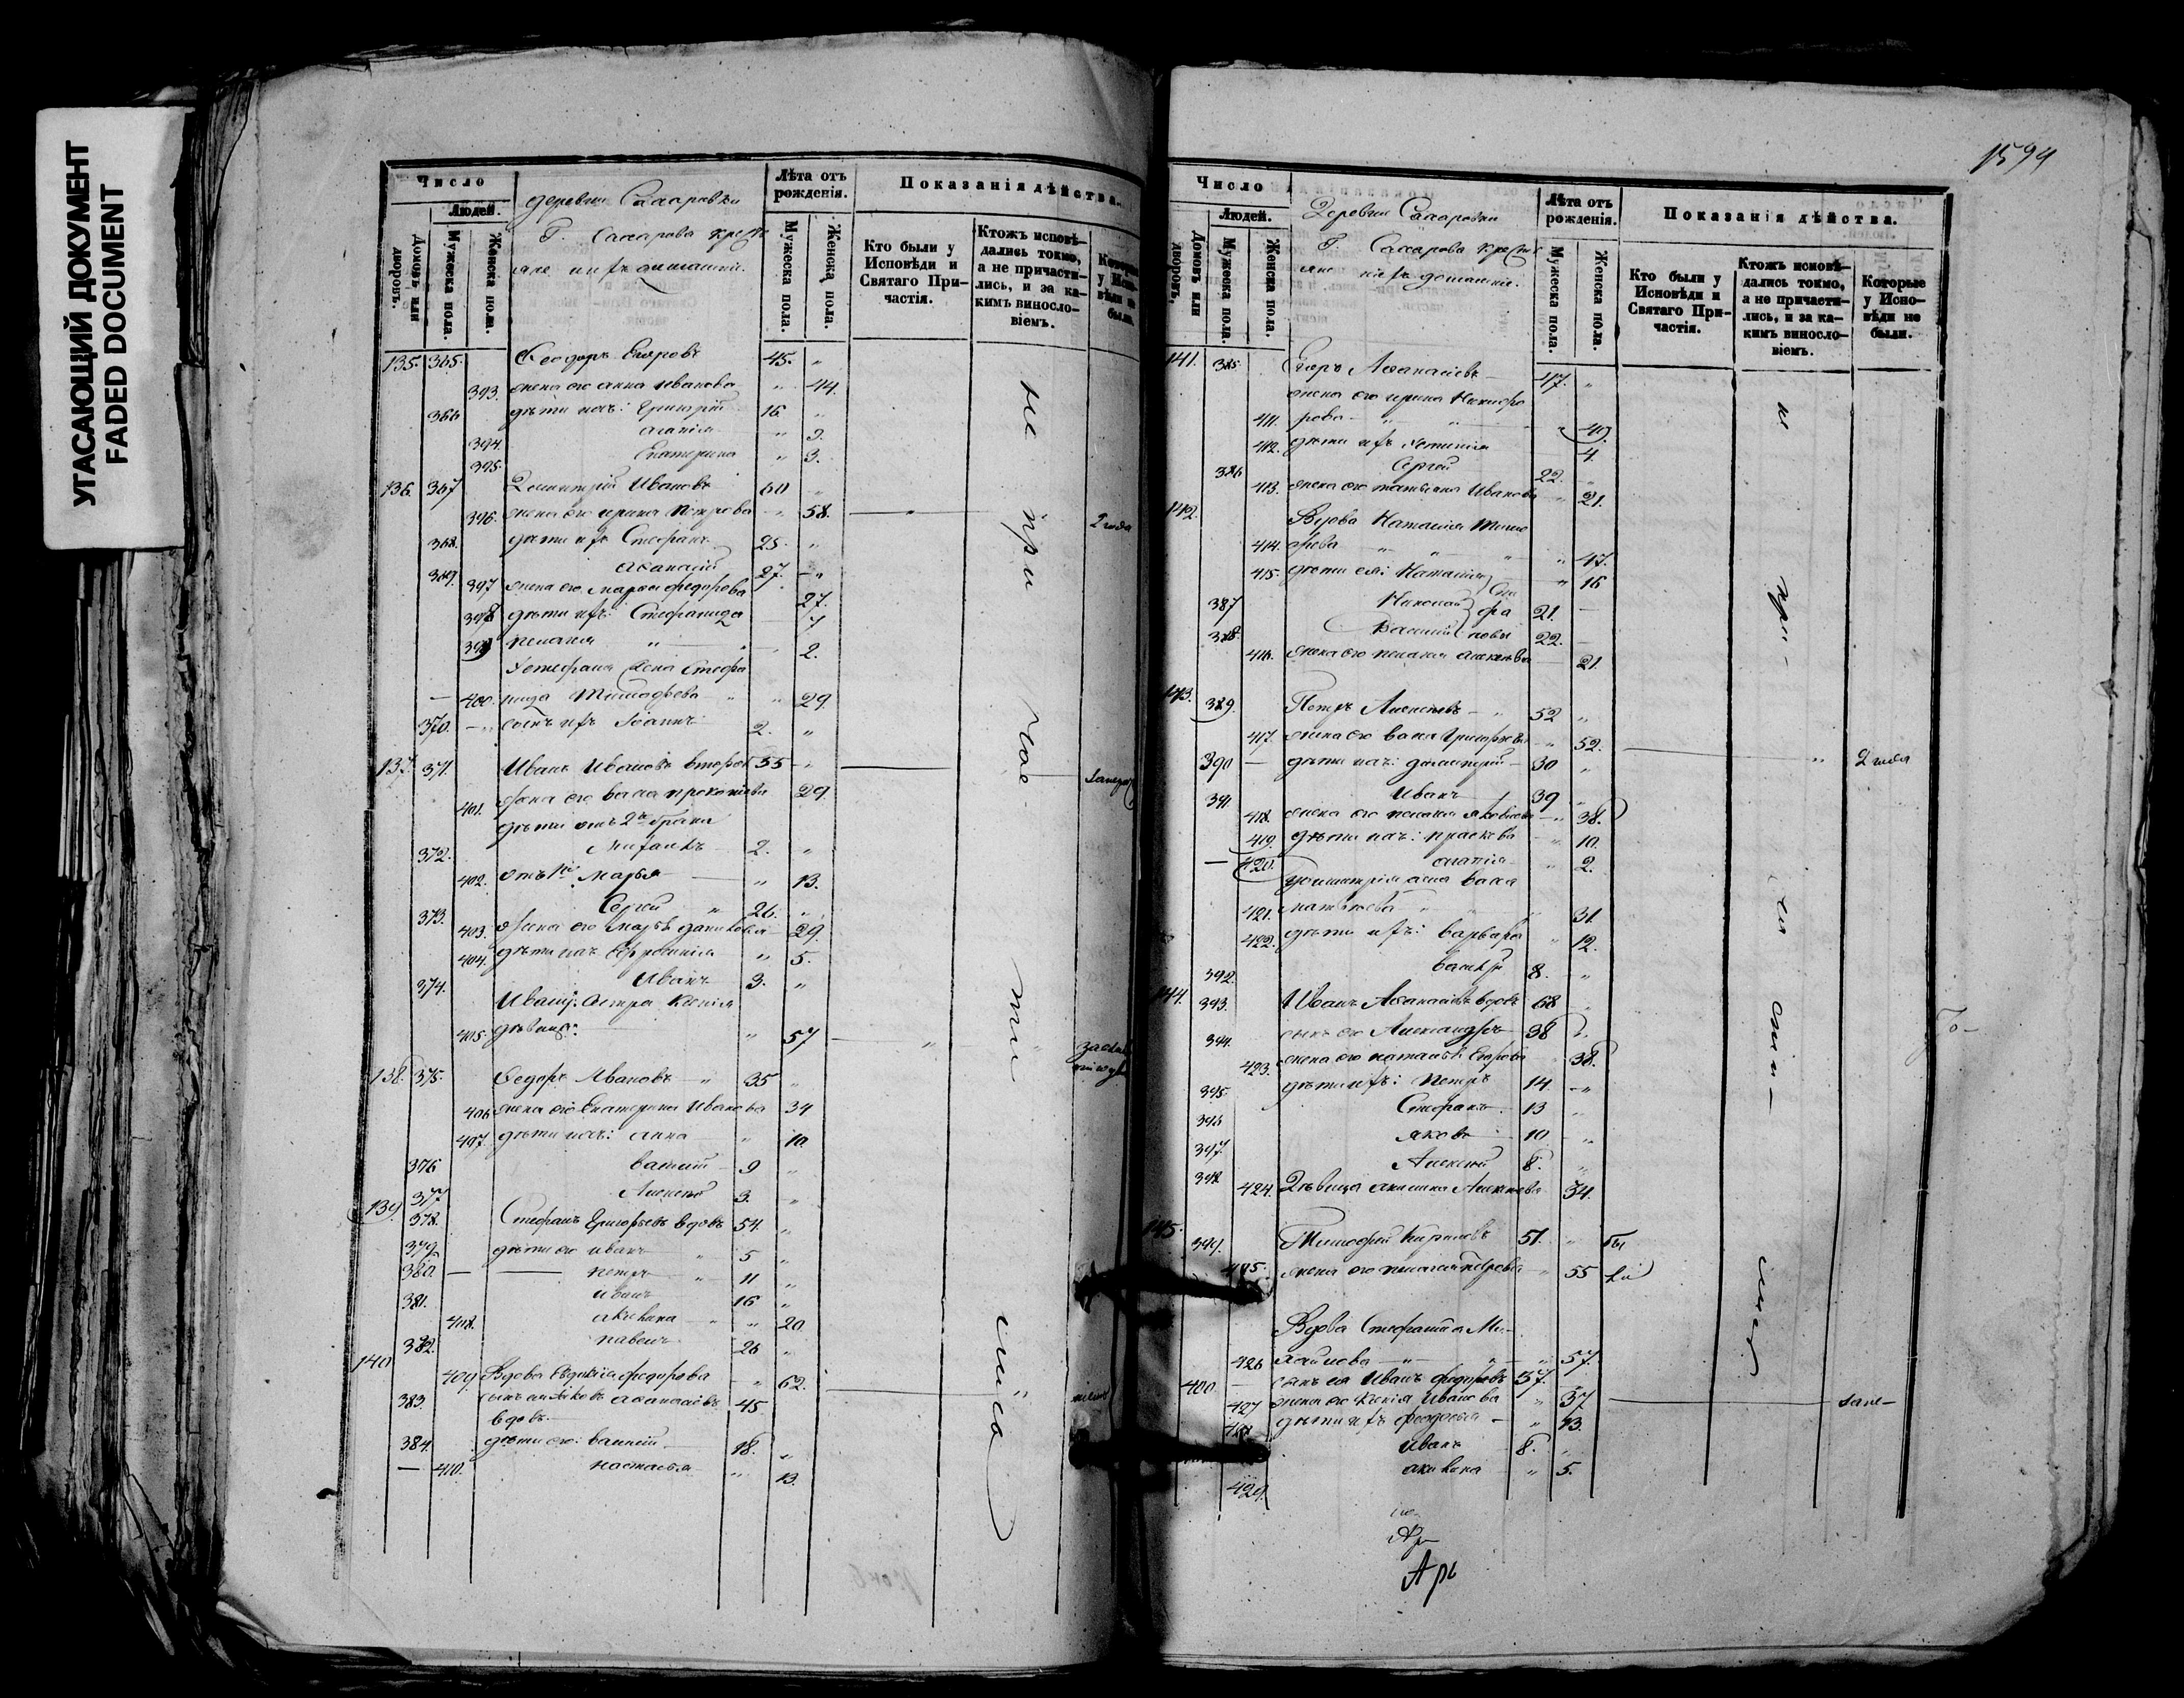 УГАСАЮЩИЙ ДОКУМЕНТ
FADED DOCUMENT
Число
Людей.
Домовъ или дворовъ.
Мужеска пола.
Женска пола.
деревни
крестьяне
Лѣта отъ рожденія.
Мужеска пола.
Женска пола.
Показанія дѣйства.
Кто были у Исповѣди и Святаго Причастія.
Ктожъ исповѣдались токмо, а не причастились, и за какимъ винословіемъ.
Которые у Исповѣди не были.
135. 365. Ѳеодоръ Егоровъ 45. „
393. жена его Анна Иванова „ 44.
366 дѣти ихъ: Григорій 16. „
394. Агапія „ 9.
395. Екатерина „ 3.
136. 367 Димитрій Ивановъ 60 „
396. жена его Ирина Петрова „ 58. 2 года
368. дѣти ихъ Стефанъ 25. „
369. Аѳанасій 27. „
397 жена его Марья Федорова 27.
398 дѣти ихъ: Стефанида 7
399 Пелагея „ 2.
Устефана жена Стефа
400. нида Тимофѣева „ 29.
370. сынъ ихъ Іоаннъ 2. „
137. 371. Иванъ Ивановъ вторый 55 „
401. жена его Васса Прокопьева 29.
дѣти отъ 2го брака
372. Михаилъ 2. „
402. отъ 1го Марья „ 13.
373. Сергей „ 26. „
403. жена его Марья Данилова 29.
404. дѣти ихъ Ефросинія „ 5.
374. Иванъ 3. „
Ивана сестра Ксенія
405. дѣвица: „ 57
138. 375. Федоръ Ивановъ „ 35 „
406 жена его Екатерина Иванова 34
407. дѣти ихъ: Анна „ 10.
376 Василій 9 „
377 Алексей 3. „
139. 378. Стефанъ Григорьевъ вдовъ 54. „
379. дѣти его Иванъ „ 5 „
380. Петръ „ 11 „
381. Иванъ 16 „
408. Акилина „ 20
382. Павелъ 26 „
140 409. Вдова Евдокія Федорова „ 62.
383. сынъ ея Яковъ Аѳанасіевъ 45
вдовъ
384. дѣти его: Василій 18. „
410. Настасья „ 13.
не при час ти лись
1594
Число
Людей.
Домовъ или дворовъ.
Мужеска пола.
Женска пола.
Деревни
крестьяне
Лѣта отъ рожденія.
Мужеска пола.
Женска пола.
Показанія дѣйства.
Кто были у Исповѣди и Святаго Причастія.
Ктожъ исповѣдались токмо, а не причастились, и за какимъ винословіемъ.
Которые у Исповѣди не были.
141. 385. Егоръ Аѳанасіевъ 47. „
жена его Ирина Никифо
411. рова „ „
412. дѣти ихъ 4.
386 Сергей 22. „
413. жена его Татьяна Иванова „ 21.
142. Вдова Наталія Тимо
414. фѣева „ „ „ 47.
415. дѣти ея: Наталія „ 16
387 Николай 21. —
388. Василій 22. —
416. жена его Пелагея Алексѣева 21.
143. 389. Петръ Алексѣевъ „ 52 „
417. жена его Васса Григорьева „ 52.
390 дѣти ихъ: Димитрій 30 „ 2 года
391 Иванъ 39 „
418. жена его Пелагея Яковлева „ 38.
419. дѣти ихъ: Прасковья „ 10.
420. Агапія „ 2.
Димитрія жена Васса
421. Матвѣева „ 31.
422. дѣти ихъ: Варвара „ 12.
392. Василій 8. „
144. 393. Иванъ Аѳанасіевъ вдовъ 68 „
394. сынъ его Александръ 38 „
423. жена его Наталья Егорова 38.
395. дѣти ихъ: Петръ 14. „
396 Стефанъ 13 „
397 Яковъ 10 „
398 Алексей 8. „
424. Дѣвица Акилина Алексѣева 34.
145. 399. Тимофей Кириловъ 51. „ бы
425. жена его Пелагея Петрова „ 55 ли
Вдова Стефанида Ми
426 хайлова „ „ 57.
400 сынъ ея Иванъ Федоровъ 37.
427 жена его Ксенія Иванова „ 37
428 дѣти ихъ Феодосья „ 13.
Иванъ 8. „
429. Акилина „ 5.
Ар
Арх